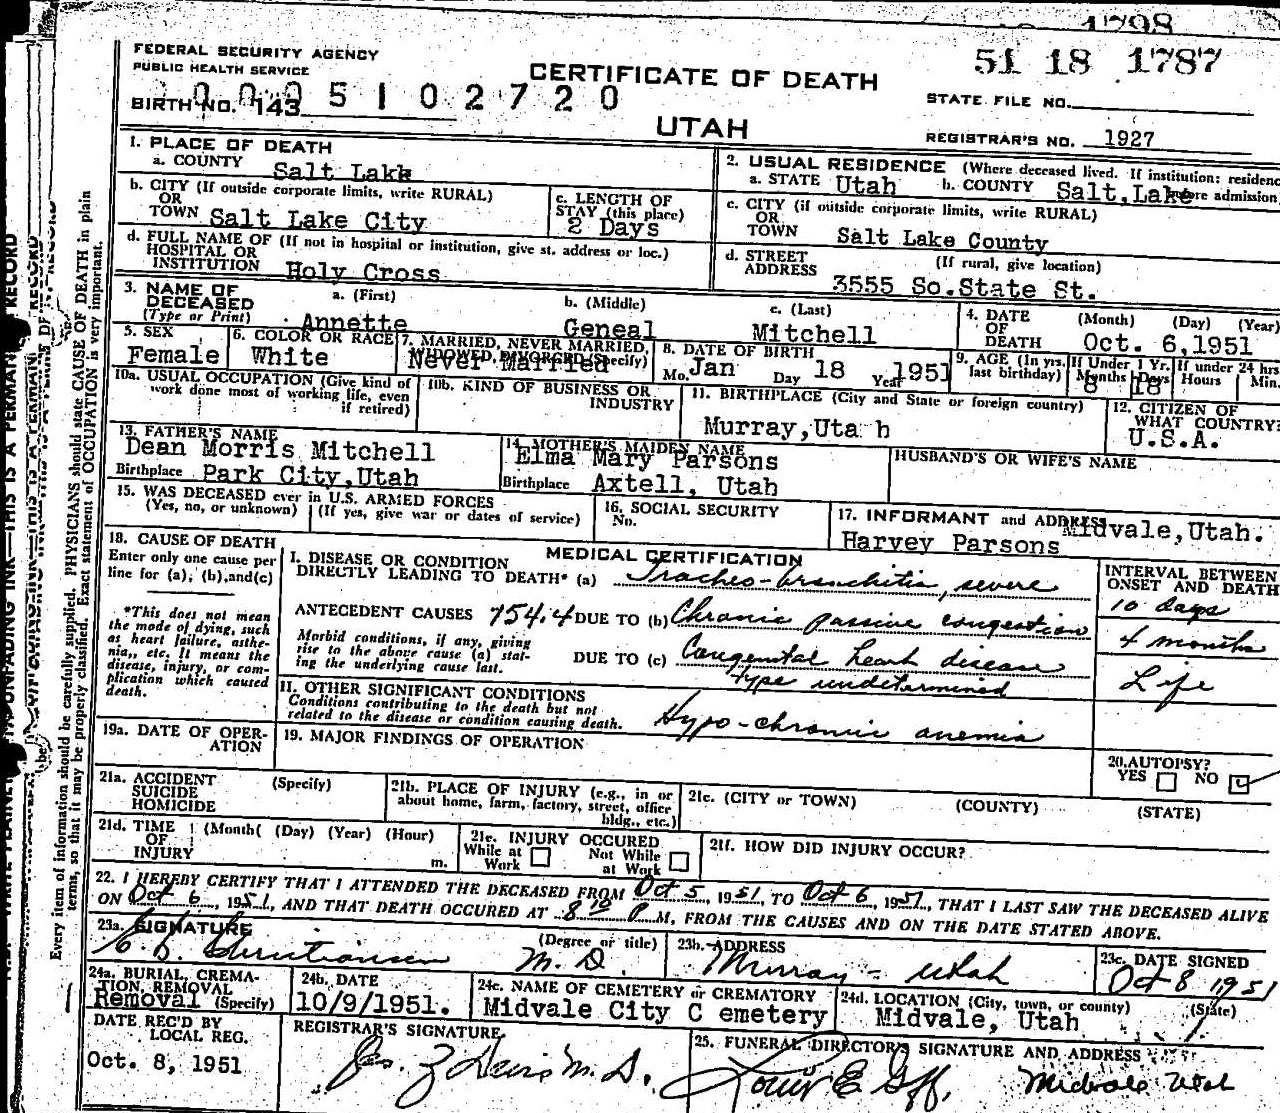 1798
FEDERAL SECURITY AGENCY
PUBLIC HEALTH SERVICE
CERTIFICATE OF DEATH
51 18 1787
0005102720
BIRTH NO. 143
STATE FILE NO.
UTAH
REGISTRAR'S NO. 1927
1. PLACE OF DEATH
a. COUNTY Salt Lake
2. USUAL RESIDENCE (Where deceased lived. If institution: residence before admission)
a. STATE Utah b. COUNTY Salt,Lake
b. CITY (If outside corporate limits, write RURAL)
OR
TOWN Salt Lake City
c. LENGTH OF
STAY (this place)
2 Days
c. CITY (if outside corporate limits, write RURAL)
OR
TOWN Salt Lake County
d. FULL NAME OF (If not in hospital or institution, give st. address or loc.)
HOSPITAL OR
INSTITUTION Holy Cross
d. STREET (If rural, give location)
ADDRESS 3555 So.State St.
3. NAME OF
DECEASED
(Type or Print)
a. (First) b. (Middle) c. (Last)
Annette Geneal Mitchell
4. DATE (Month) (Day) (Year)
OF
DEATH Oct. 6,1951
5. SEX
Female
6. COLOR OR RACE
White
7. MARRIED, NEVER MARRIED,
WIDOWED, DIVORCED (Specify)
Never Married
8. DATE OF BIRTH
Mo. Jan Day 18 Year 1951
9. AGE (In yrs. last birthday)
If Under 1 Yr.
Months 8 Days 18
If under 24 hrs
Hours Min.
10a. USUAL OCCUPATION (Give kind of
work done most of working life, even
if retired)
10b. KIND OF BUSINESS OR
INDUSTRY
11. BIRTHPLACE (City and State or foreign country)
Murray,Uta h
12. CITIZEN OF
WHAT COUNTRY?
U.S.A.
13. FATHER'S NAME
Dean Morris Mitchell
Birthplace Park City,Utah
14. MOTHER'S MAIDEN NAME
Elma Mary Parsons
Birthplace Axtell, Utah
HUSBAND'S OR WIFE'S NAME
15. WAS DECEASED ever in U.S. ARMED FORCES
(Yes, no, or unknown) (If yes, give war or dates of service)
16. SOCIAL SECURITY
No.
17. INFORMANT and ADDRESS Midvale,Utah.
Harvey Parsons
18. CAUSE OF DEATH
Enter only one cause per
line for (a), (b),and(c)
*This does not mean
the mode of dying, such
as heart failure, asthe-
nia,, etc. It means the
disease, injury, or com-
plication which caused
death.
MEDICAL CERTIFICATION
I. DISEASE OR CONDITION
DIRECTLY LEADING TO DEATH* (a) Tracheo-bronchitis, severe
INTERVAL BETWEEN
ONSET AND DEATH
10 days
ANTECEDENT CAUSES 754.4 DUE TO (b) Chronic passive congestion
4 months
Morbid conditions, if any, giving
rise to the above cause (a) stat-
ing the underlying cause last.
DUE TO (c) Congenital heart disease
type undetermined
Life
II. OTHER SIGNIFICANT CONDITIONS
Conditions contributing to the death but not
related to the disease or condition causing death.
Hypo-chromic anemia
19a. DATE OF OPER-
ATION
19. MAJOR FINDINGS OF OPERATION
20. AUTOPSY?
YES NO
21a. ACCIDENT (Specify)
SUICIDE
HOMICIDE
21b. PLACE OF INJURY (e.g., in or
about home, farm, factory, street, office
bldg., etc.)
21c. (CITY or TOWN) (COUNTY) (STATE)
21d. TIME (Month( (Day) (Year) (Hour)
OF
INJURY m.
21e. INJURY OCCURED
While at Work Not While at Work
21f. HOW DID INJURY OCCUR?
22. I HEREBY CERTIFY THAT I ATTENDED THE DECEASED FROM Oct 5, 1951, TO Oct 6, 1951, THAT I LAST SAW THE DECEASED ALIVE
ON Oct 6, 1951, AND THAT DEATH OCCURED AT 8 10 P M, FROM THE CAUSES AND ON THE DATE STATED ABOVE.
23a. SIGNATURE (Degree or title)
Christiansen M.D.
23b. ADDRESS
Murray - Utah
23c. DATE SIGNED
Oct 8 1951
24a. BURIAL, CREMA-
TION, REMOVAL
Removal (Specify)
24b. DATE
10/9/1951.
24c. NAME OF CEMETERY or CREMATORY
Midvale City C emetery
24d. LOCATION (City, town, or county) (State)
Midvale, Utah
DATE REC'D BY
LOCAL REG.
Oct. 8, 1951
REGISTRAR'S SIGNATURE
M.D.
25. FUNERAL DIRECTOR'S SIGNATURE AND ADDRESS
Louis E Goff, Midvale Utah
Every item of information should be carefully supplied. PHYSICIANS should state CAUSE OF DEATH in plain
terms, so that it may be properly classified. Exact statement of OCCUPATION is very important.
UNFADING INK—THIS IS A PERMANENT RECORD